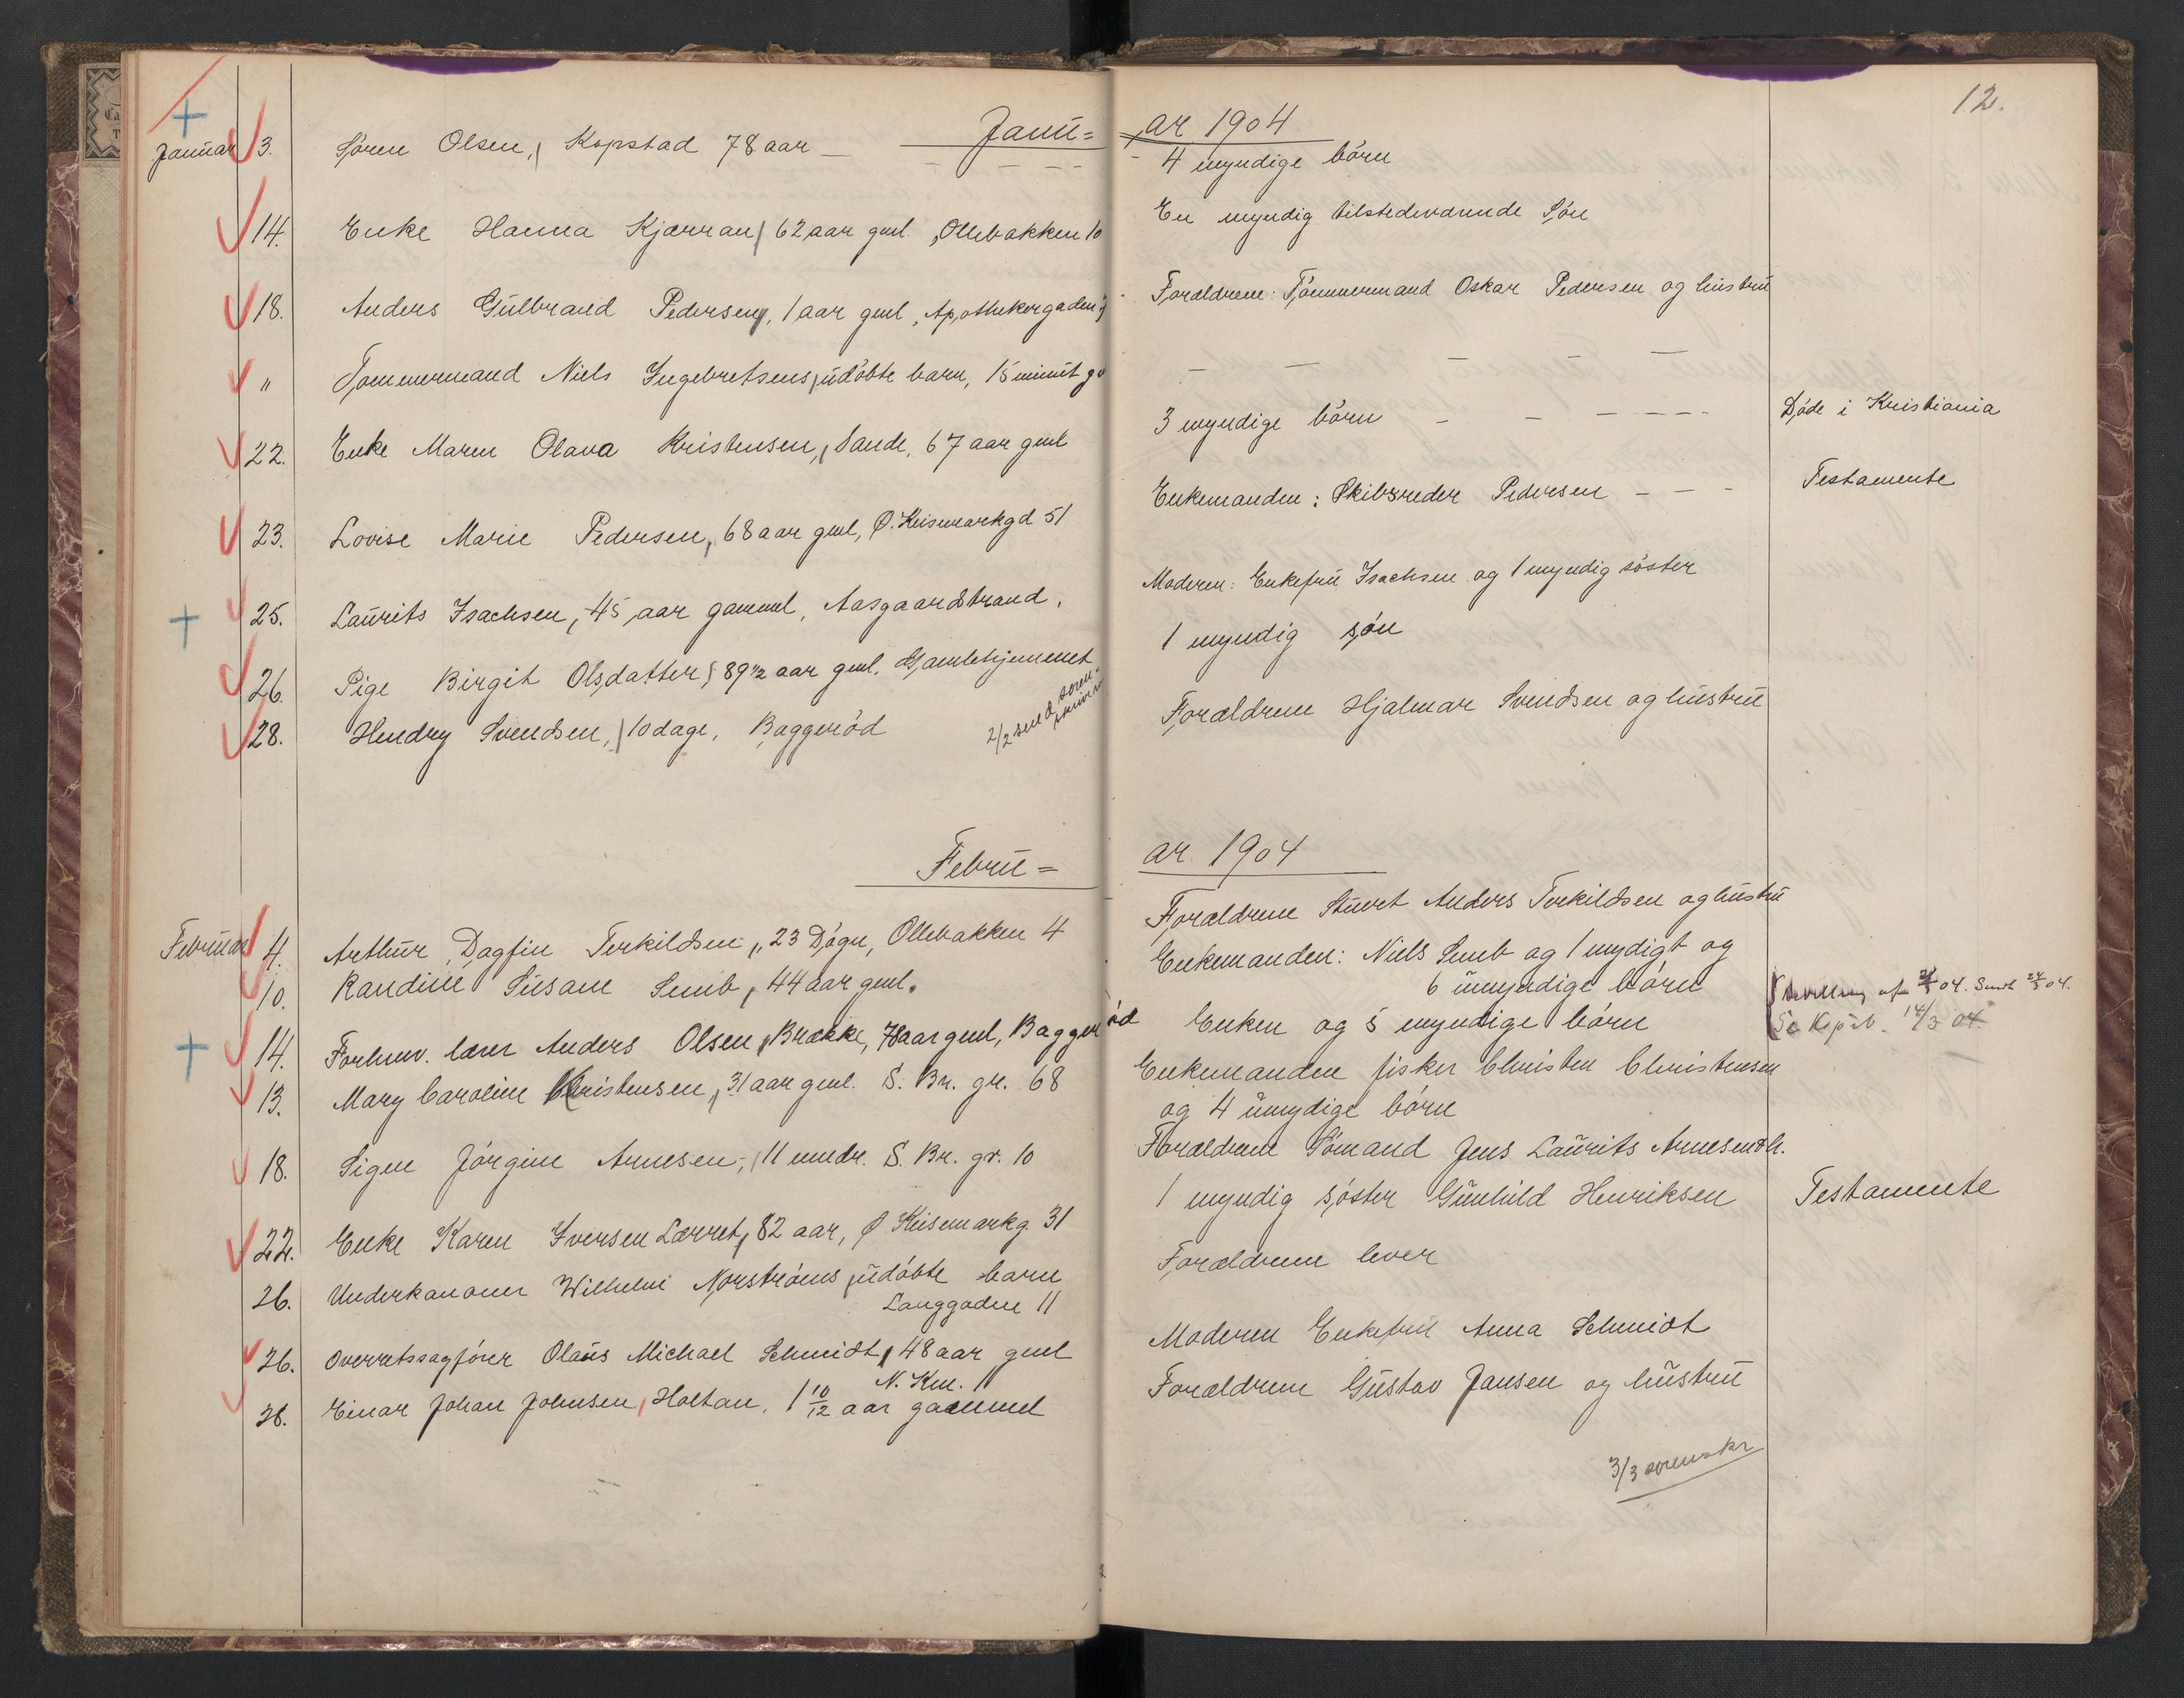 12.
Janu=ar 1904
Januar 3. Søren Olsen, Kopstad 78 aar — 4 myndige børn
14. Enke Hanna Kjærran 62 aar gml. Ollebakken 10 En myndig tilstedeværende Søn
18. Anders Gulbrand Pedersen, 1 aar gml, Apothekergaden Forældrene: Tømmermand Oskar Pedersen og hustru
" Tømmermand Niels Ingebretsens udøbte barn, 15 minut — — — — —
22. Enke Maren Olava Kristensen, Sande, 67 aar gml 3 myndige børn — — — — — Døde i Kristiania
23. Lovise Marie Pedersen, 68 aar gml, Ø. Keisemarkgd 51 Enkemanden: Skibsreder Pedersen — — — Testamente
25. Laurits Isachsen, 45 aar gammel, Aasgaardstrand. Moderen: Enkefru Isachsen og 1 myndig søster
26. Pige Birgit Olsdatter, 89 1/2 aar gml. Gamlehjemmet 1 myndig søn
28. Hendry Svendsen, 10 dage, Baggerød Forældrene Hjalmar Svendsen og hustru
2/2 send. soren-
Febru=ar 1904
Februar 4. Arthur Dagfin Terkildsen, 23 Døgn, Ollebakken 4 Forældrene Stuert Anders Terkildsen og hustru
10. Randine Susane Semb, 44 aar gml. Enkemanden: Niels Semb og 1 mydigt og
6 umyndige børn Bevilling af 04. Sendt 04.
14. Forhenv. lærer Anders Olsen Brække, 78 aar gml, Baggerød Enken og 5 myndige børn Se Kopib. 14/3 04.
13. Mary Caroline Christensen, 31 aar gml. S. Br. gr. 68 Enkemanden fisker Christen Christensen
og 4 umydige børn
18. Signe Jørgine Arnesen, 11 mndr. S. Br. gr. 10 Forældrene Sømand Jens Laurits Arnesen o h.
22. Enke Karen Iversen Lærret, 82 aar, Ø Keisemarkg. 31 1 myndig søster Gunhild Henriksen Testamente
26. Underkanoner Wilhelm Norstrøms udøbte barn Forældrene lever
Langgaden 11
26. Overretssagfører Olaus Michael Schmidt, 48 aar gml Moderen Enkefru Anna Schmidt
N. Km. 11
28. Einar Johan Johnsen, Holtan, 1 10/12 aar gammel Forældrene Gustav Jansen og hustru
3/3 sorenskr